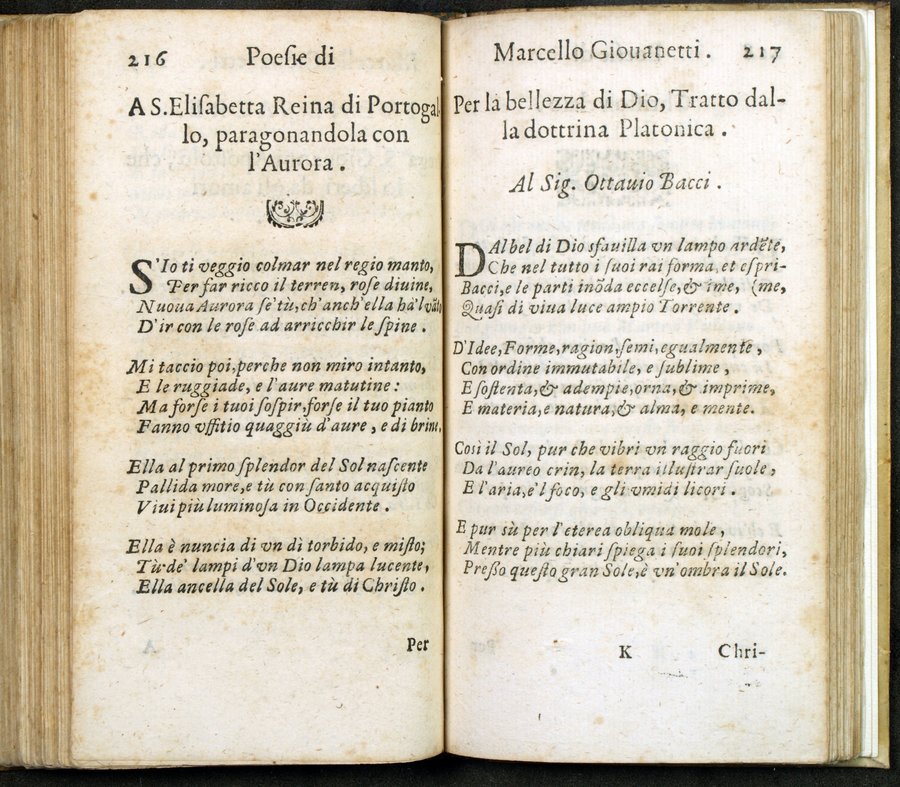 216 Poesie di
A S. Elisabetta Reina di Portogal-
lo, paragonandola con
l'Aurora.
S'Io ti veggio colmar nel regio manto,
Per far ricco il terren, rose divine,
Nuoua Aurora se' tù, ch' anch' ella hà'l vāto
D'ir con le rose ad arricchir le spine.
Mi taccio poi, perche non miro intanto,
E le ruggiade, e l'aure matutine:
Ma forse i tuoi sospir, forse il tuo pianto
Fanno vffitio quaggiù d'aure, e di brine.
Ella al primo splendor del Sol nascente
Pallida more, e tù con santo acquisto
Viui più luminosa in Occidente.
Ella è nuncia di vn dì torbido, e misto;
Tù de' lampi d'vn Dio lampa lucente,
Ella ancella del Sole, e tù di Christo.
Per
Marcello Giouanetti. 217
Per la bellezza di Dio, Tratto dal-
la dottrina Platonica.
Al Sig. Ottauio Bacci.
DAl bel di Dio sfauilla vn lampo ardēte,
Che nel tutto i suoi rai forma, et espri-
Bacci, e le parti inōda eccelse, & ime, (me,
Quasi di viua luce ampio Torrente.
D'Idee, Forme, ragion, semi, egualmente,
Con ordine immutabile, e sublime,
E sostenta, & adempie, orna, & imprime,
E materia, e natura, & alma, e mente.
Così il Sol, pur che vibri vn raggio fuori
Da l'aureo crin, la terra illustrar suole,
E l'aria, e'l foco, e gli vmidi licori.
E pur sù per l'eterea obliqua mole,
Mentre più chiari spiega i suoi splendori,
Presso questo gran Sole, è vn'ombra il Sole.
K Chri-